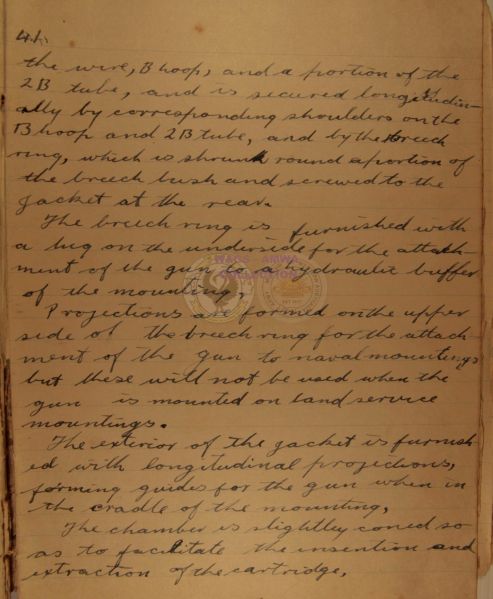 41.
the wire, B hoop, and a portion of the
2B tube, and is secured longitudin-
ally by corresponding shoulders on the
B hoop and 2B tube, and by the breech
ring, which is shrunk round a portion of
the breech bush and screwed to the
jacket at the rear.
The breech ring is furnished with
a lug on the underside for the attach-
ment of the gun to a hydraulic buffer
of the mounting,
Projections are formed on the upper
side of the breech ring for the attach
ment of the gun to naval mountings
but these will not be used when the
gun is mounted on land service
mountings.
The exterior of the jacket is furnish
ed with longitudinal projections,
forming guides for the gun when in
the cradle of the mounting,
The chamber is slightley coned so
as to facilitate the insention and
extraction of the cartridge,
WAGS - AMWA